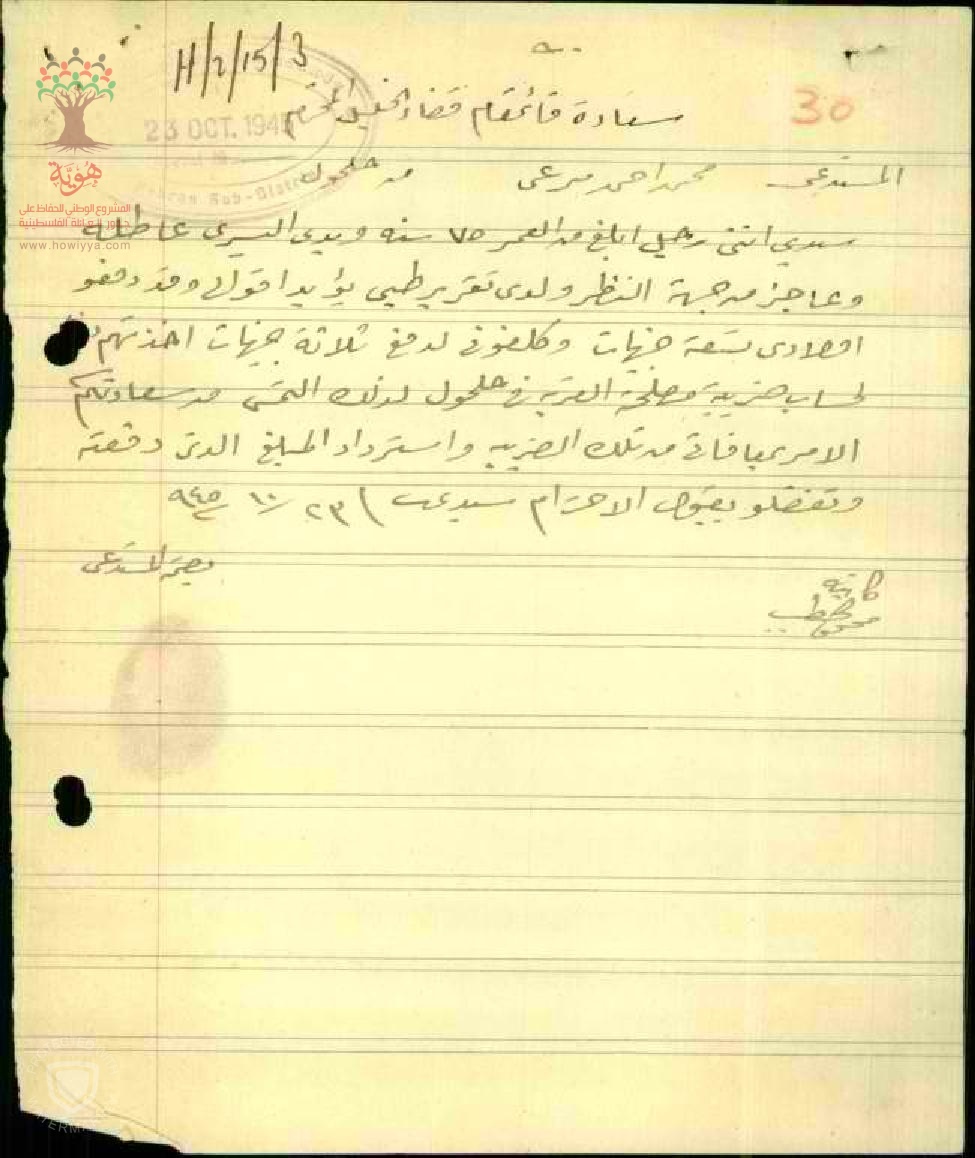 H/2/15/3
30
23 OCT. 194
Hebron Sub-District
سعادة قائمقام قضاء الخليل المحترم
المستدعي محمد احمد مرعي من حلحول
سيدي انني رجل ابلغ من العمر ٧٥ سنه ويدي اليسرى عاطله
وعاجز من جهة النظر ولدى تقرير طبي يؤيد اقولي وقد دفعو
اولادى تسعة جنيهات وكلفوني لدفع ثلاثة جنيهات اخذتهم
لحساب ضريبة مصلحة القريه في حلحول لذلك التمس من سعادتكم
الامر بمعافاتي من تلك الضريبه واسترداد المبلغ الذي دفعته
وتفضلو بقبول الاحترام سيدي ٢٣/١٠/٩٤٥
بصمة المستدعي
كاتبه
هُويّة
المشروع الوطني للحفاظ على
جذور العائلة الفلسطينية
www.howiyya.com